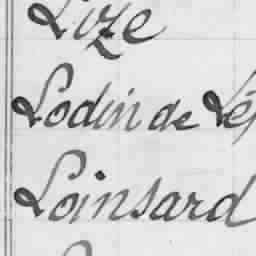 Lize
Lodin de Lé
Loinsard